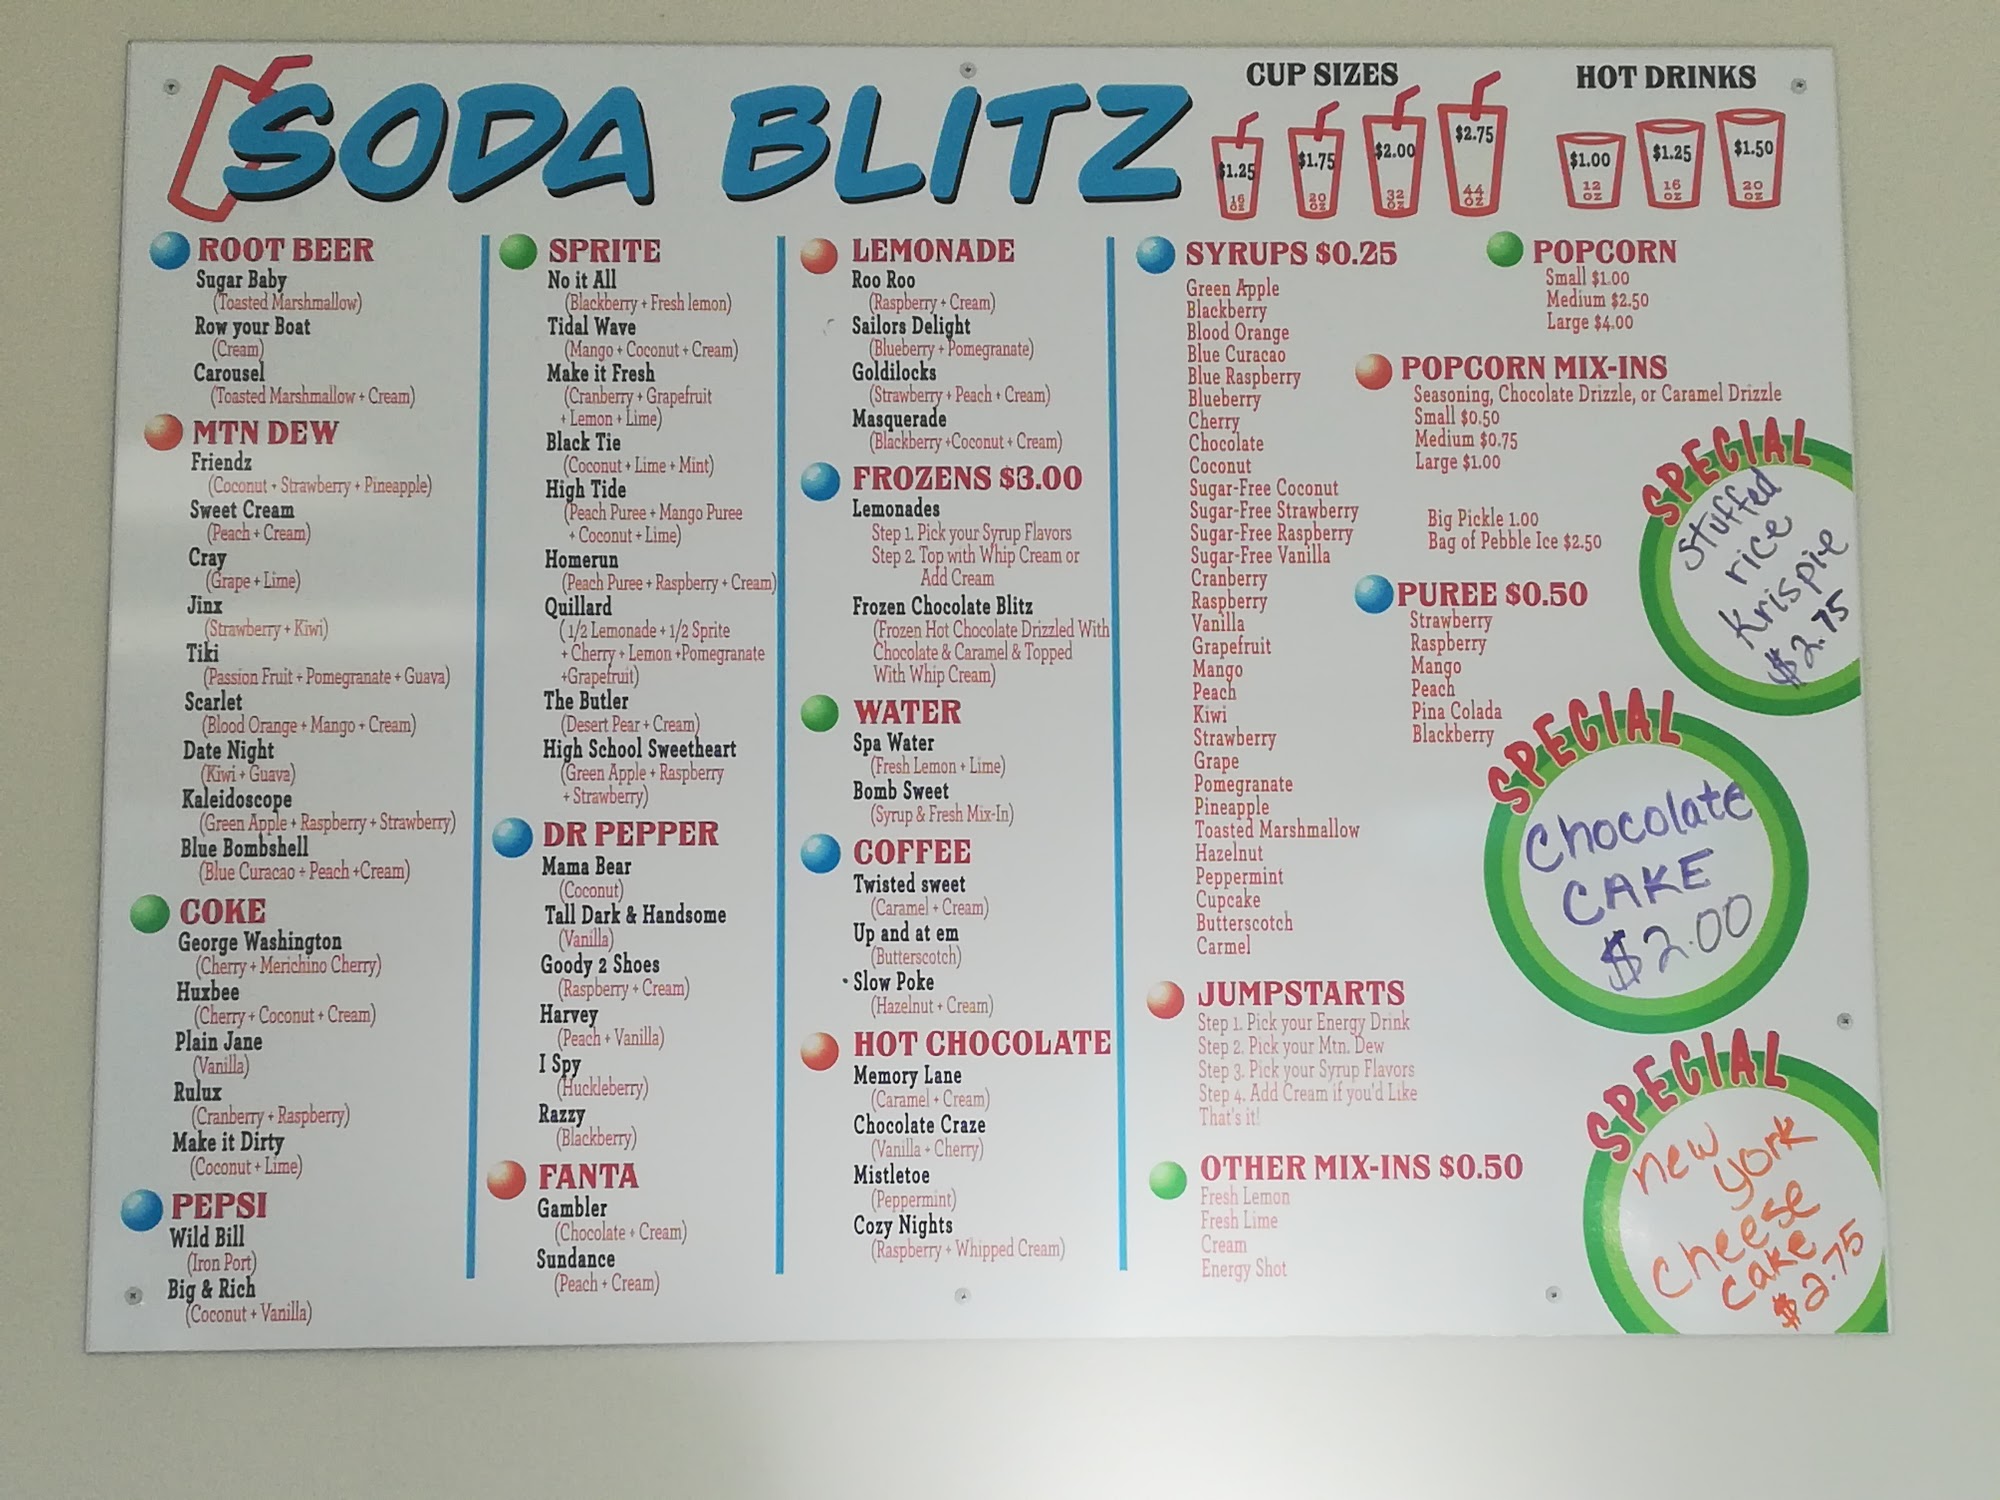 SODA BLITZ
CUP SIZES
$1.25
16
OZ
$1.75
20
OZ
$2.00
32
OZ
$2.75
44
OZ
HOT DRINKS
$1.00
12
OZ
$1.25
16
OZ
$1.50
20
OZ
ROOT BEER
Sugar Baby
(Toasted Marshmallow)
Row your Boat
(Cream)
Carousel
(Toasted Marshmallow + Cream)
MTN DEW
Friendz
(Coconut + Strawberry + Pineapple)
Sweet Cream
(Peach + Cream)
Cray
(Grape + Lime)
Jinx
(Strawberry + Kiwi)
Tiki
(Passion Fruit + Pomegranate + Guava)
Scarlet
(Blood Orange + Mango + Cream)
Date Night
(Kiwi + Guava)
Kaleidoscope
(Green Apple + Raspberry + Strawberry)
Blue Bombshell
(Blue Curacao + Peach +Cream)
COKE
George Washington
(Cherry + Merichino Cherry)
Huxbee
(Cherry + Coconut + Cream)
Plain Jane
(Vanilla)
Rulux
(Cranberry + Raspberry)
Make it Dirty
(Coconut + Lime)
PEPSI
Wild Bill
(Iron Port)
Big & Rich
(Coconut + Vanilla)
SPRITE
No it All
(Blackberry + Fresh lemon)
Tidal Wave
(Mango + Coconut + Cream)
Make it Fresh
(Cranberry + Grapefruit
+ Lemon + Lime)
Black Tie
(Coconut + Lime + Mint)
High Tide
(Peach Puree + Mango Puree
+ Coconut + Lime)
Homerun
(Peach Puree + Raspberry + Cream)
Quillard
( 1/2 Lemonade + 1/2 Sprite
+ Cherry + Lemon +Pomegranate
+Grapefruit)
The Butler
(Desert Pear + Cream)
High School Sweetheart
(Green Apple + Raspberry
+ Strawberry)
DR PEPPER
Mama Bear
(Coconut)
Tall Dark & Handsome
(Vanilla)
Goody 2 Shoes
(Raspberry + Cream)
Harvey
(Peach + Vanilla)
I Spy
(Huckleberry)
Razzy
(Blackberry)
FANTA
Gambler
(Chocolate + Cream)
Sundance
(Peach + Cream)
LEMONADE
Roo Roo
(Raspberry + Cream)
Sailors Delight
(Blueberry + Pomegranate)
Goldilocks
(Strawberry + Peach + Cream)
Masquerade
(Blackberry +Coconut + Cream)
FROZENS $3.00
Lemonades
Step 1. Pick your Syrup Flavors
Step 2. Top with Whip Cream or
Add Cream
Frozen Chocolate Blitz
(Frozen Hot Chocolate Drizzled With
Chocolate & Caramel & Topped
With Whip Cream)
WATER
Spa Water
(Fresh Lemon + Lime)
Bomb Sweet
(Syrup & Fresh Mix-In)
COFFEE
Twisted sweet
(Caramel + Cream)
Up and at em
(Butterscotch)
Slow Poke
(Hazelnut + Cream)
HOT CHOCOLATE
Memory Lane
(Caramel + Cream)
Chocolate Craze
(Vanilla + Cherry)
Mistletoe
(Peppermint)
Cozy Nights
(Raspberry + Whipped Cream)
SYRUPS $0.25
Green Apple
Blackberry
Blood Orange
Blue Curacao
Blue Raspberry
Blueberry
Cherry
Chocolate
Coconut
Sugar-Free Coconut
Sugar-Free Strawberry
Sugar-Free Raspberry
Sugar-Free Vanilla
Cranberry
Raspberry
Vanilla
Grapefruit
Mango
Peach
Kiwi
Strawberry
Grape
Pomegranate
Pineapple
Toasted Marshmallow
Hazelnut
Peppermint
Cupcake
Butterscotch
Carmel
JUMPSTARTS
Step 1. Pick your Energy Drink
Step 2. Pick your Mtn. Dew
Step 3. Pick your Syrup Flavors
Step 4. Add Cream if you'd Like
That's it!
OTHER MIX-INS $0.50
Fresh Lemon
Fresh Lime
Cream
Energy Shot
POPCORN
Small $1.00
Medium $2.50
Large $4.00
POPCORN MIX-INS
Seasoning, Chocolate Drizzle, or Caramel Drizzle
Small $0.50
Medium $0.75
Large $1.00
Big Pickle 1.00
Bag of Pebble Ice $2.50
PUREE $0.50
Strawberry
Raspberry
Mango
Peach
Pina Colada
Blackberry
SPECIAL
Stuffed
rice
Krispie
$2.75
SPECIAL
Chocolate
CAKE
$2.00
SPECIAL
New
york
cheese
cake
$2.75